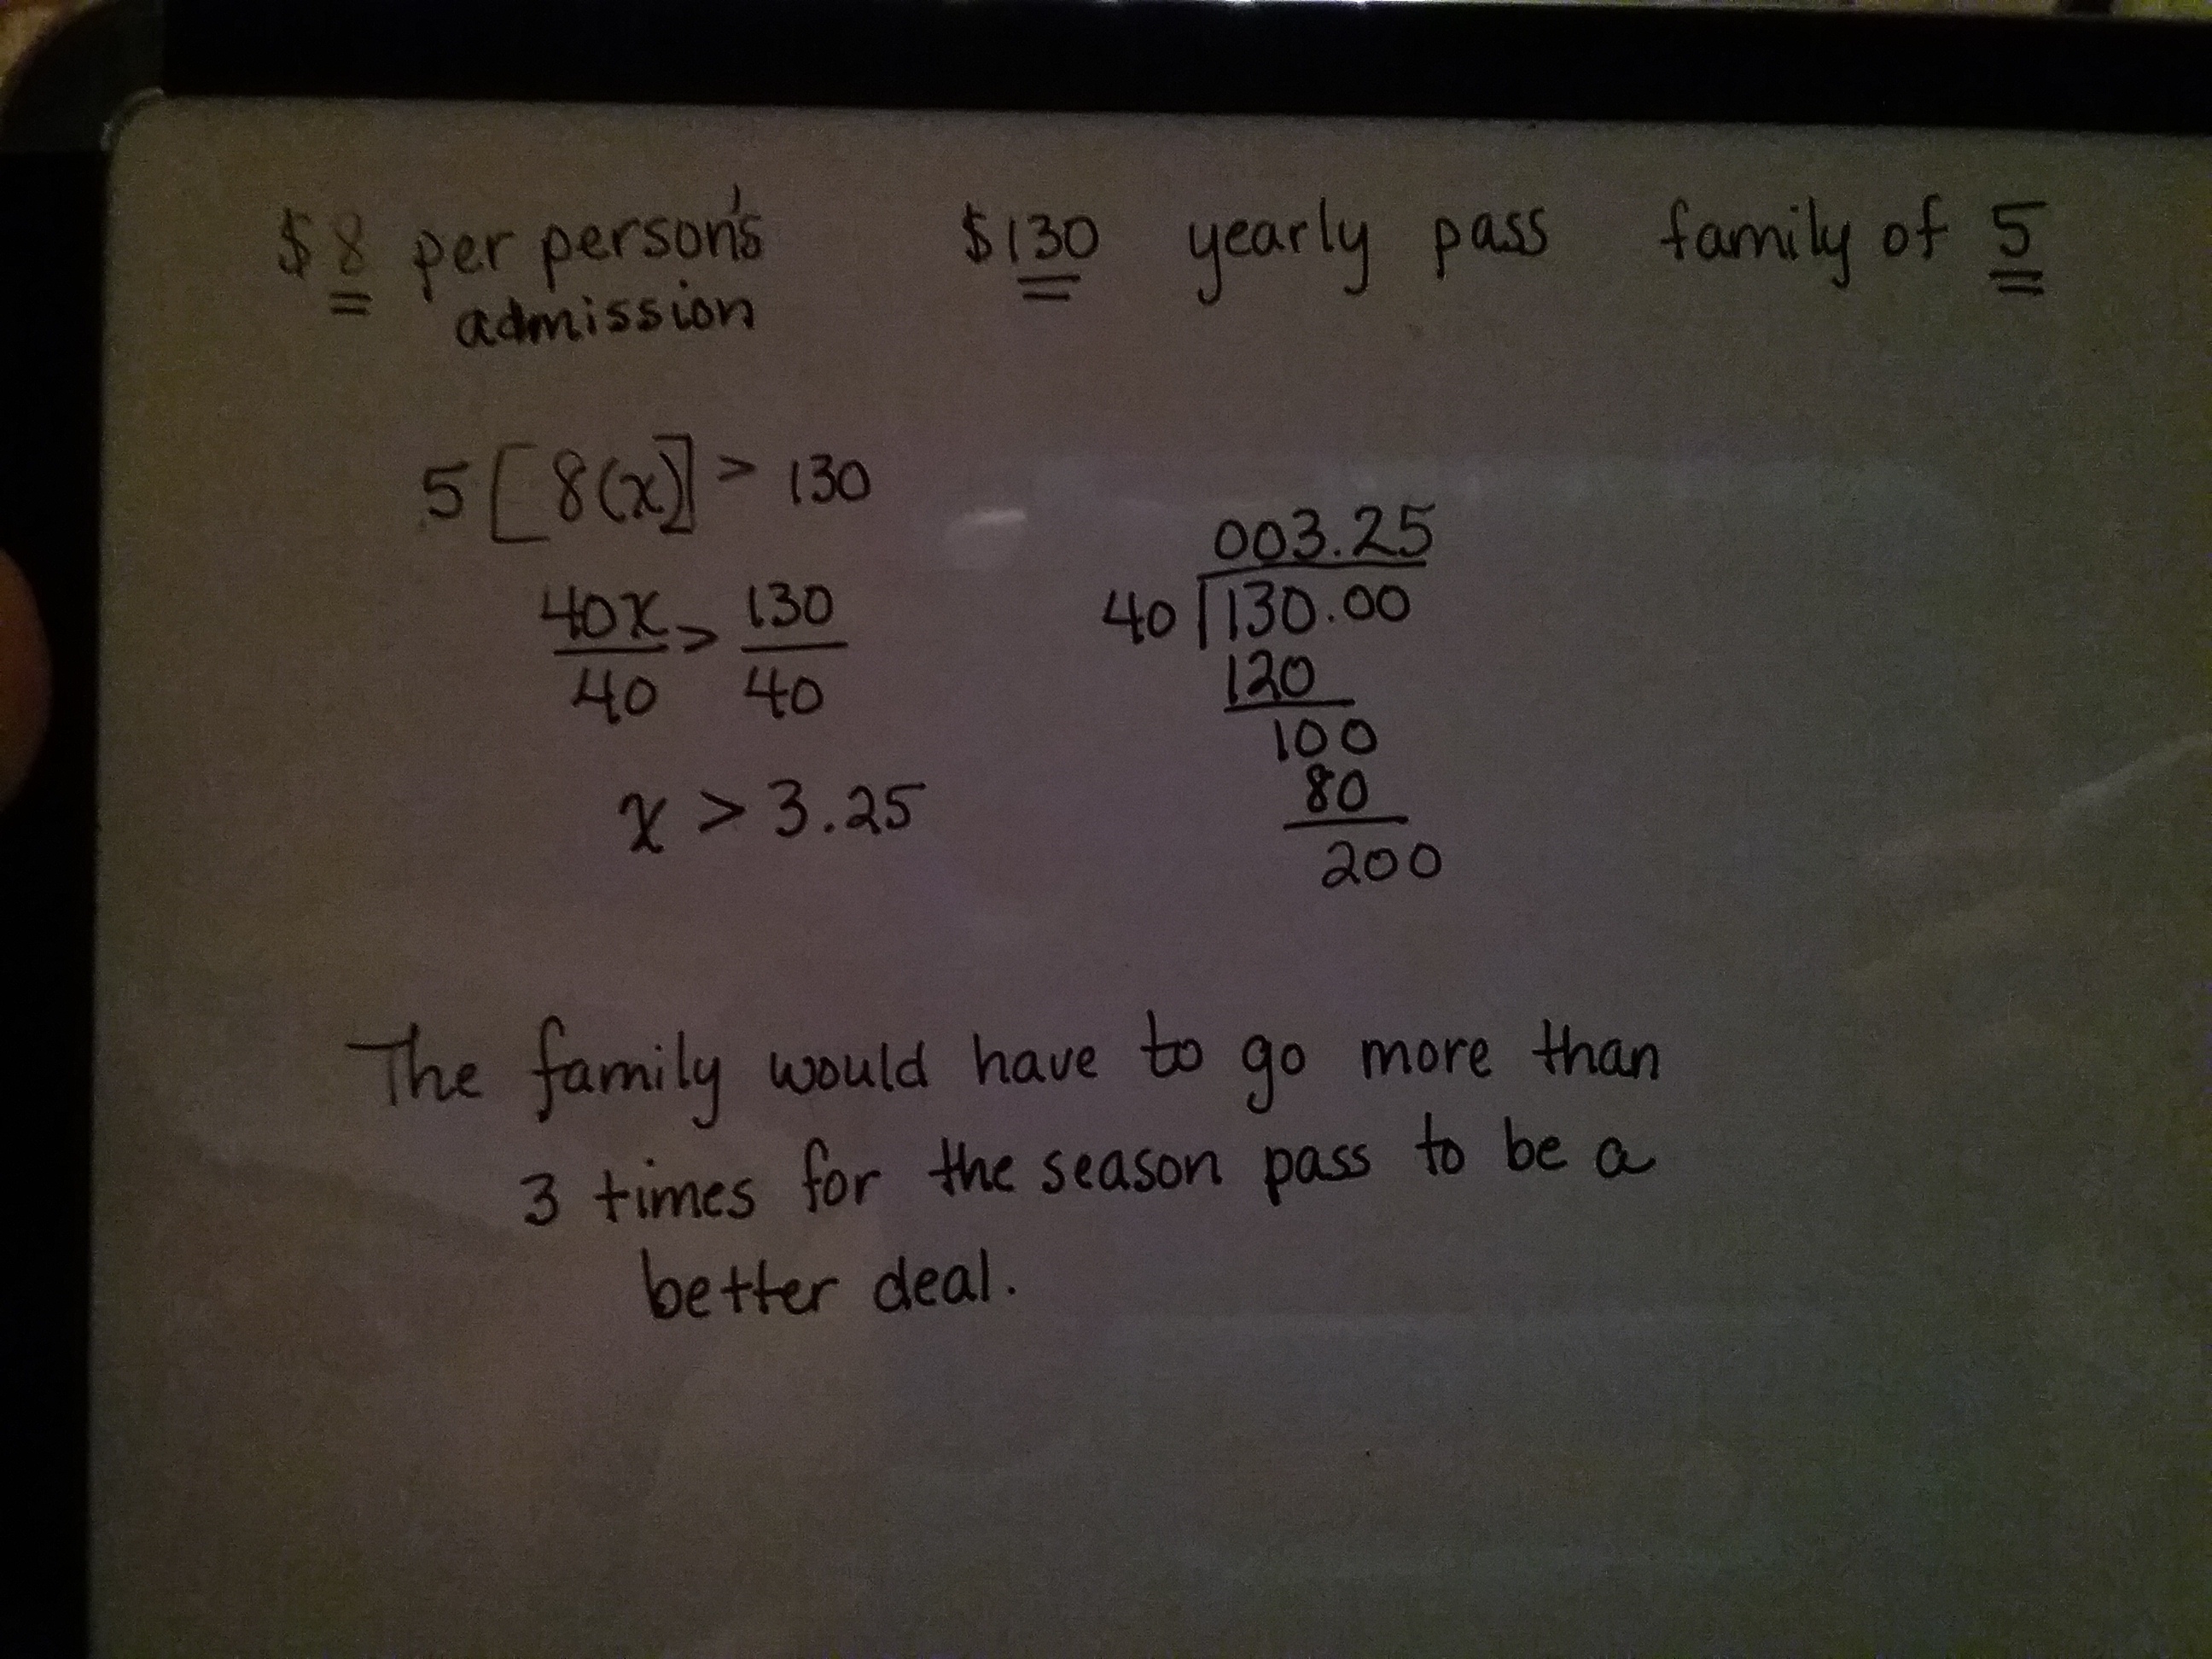 $8 per person's $130 yearly pass family of 5
admission
5[8(x)] > 130
40x/40 > 130/40
x > 3.25
003.25
40 130.00
120
100
80
200
The family would have to go more than
3 times for the season pass to be a
better deal.